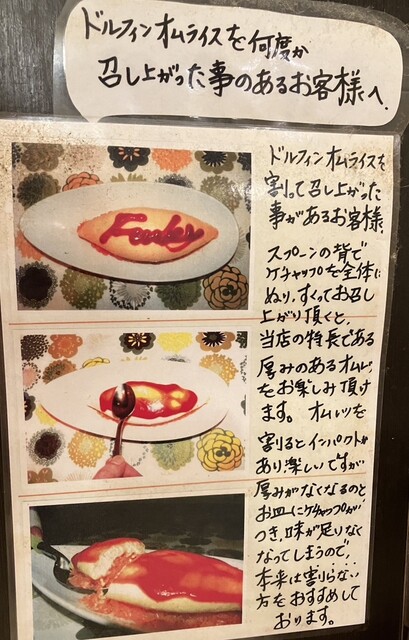 ドルフィンオムライスを何度か
召し上がった事のあるお客様へ.
ドルフィンオムライスを
割って召し上がった
事があるお客様.
スプーンの背で
ケチャップを全体に
ぬり,すくってお召し
上がり頂くと、
当店の特長である
厚みのあるオムレツ
をお楽しみ頂け
ます。オムレツを
割るとインパクトが
あり楽しいですが
厚みがなくなるのと
お皿にケチャップが
つき,味が足りなく
なってしまうので,
本来は割らない
方をおすすめして
おります。
Funky